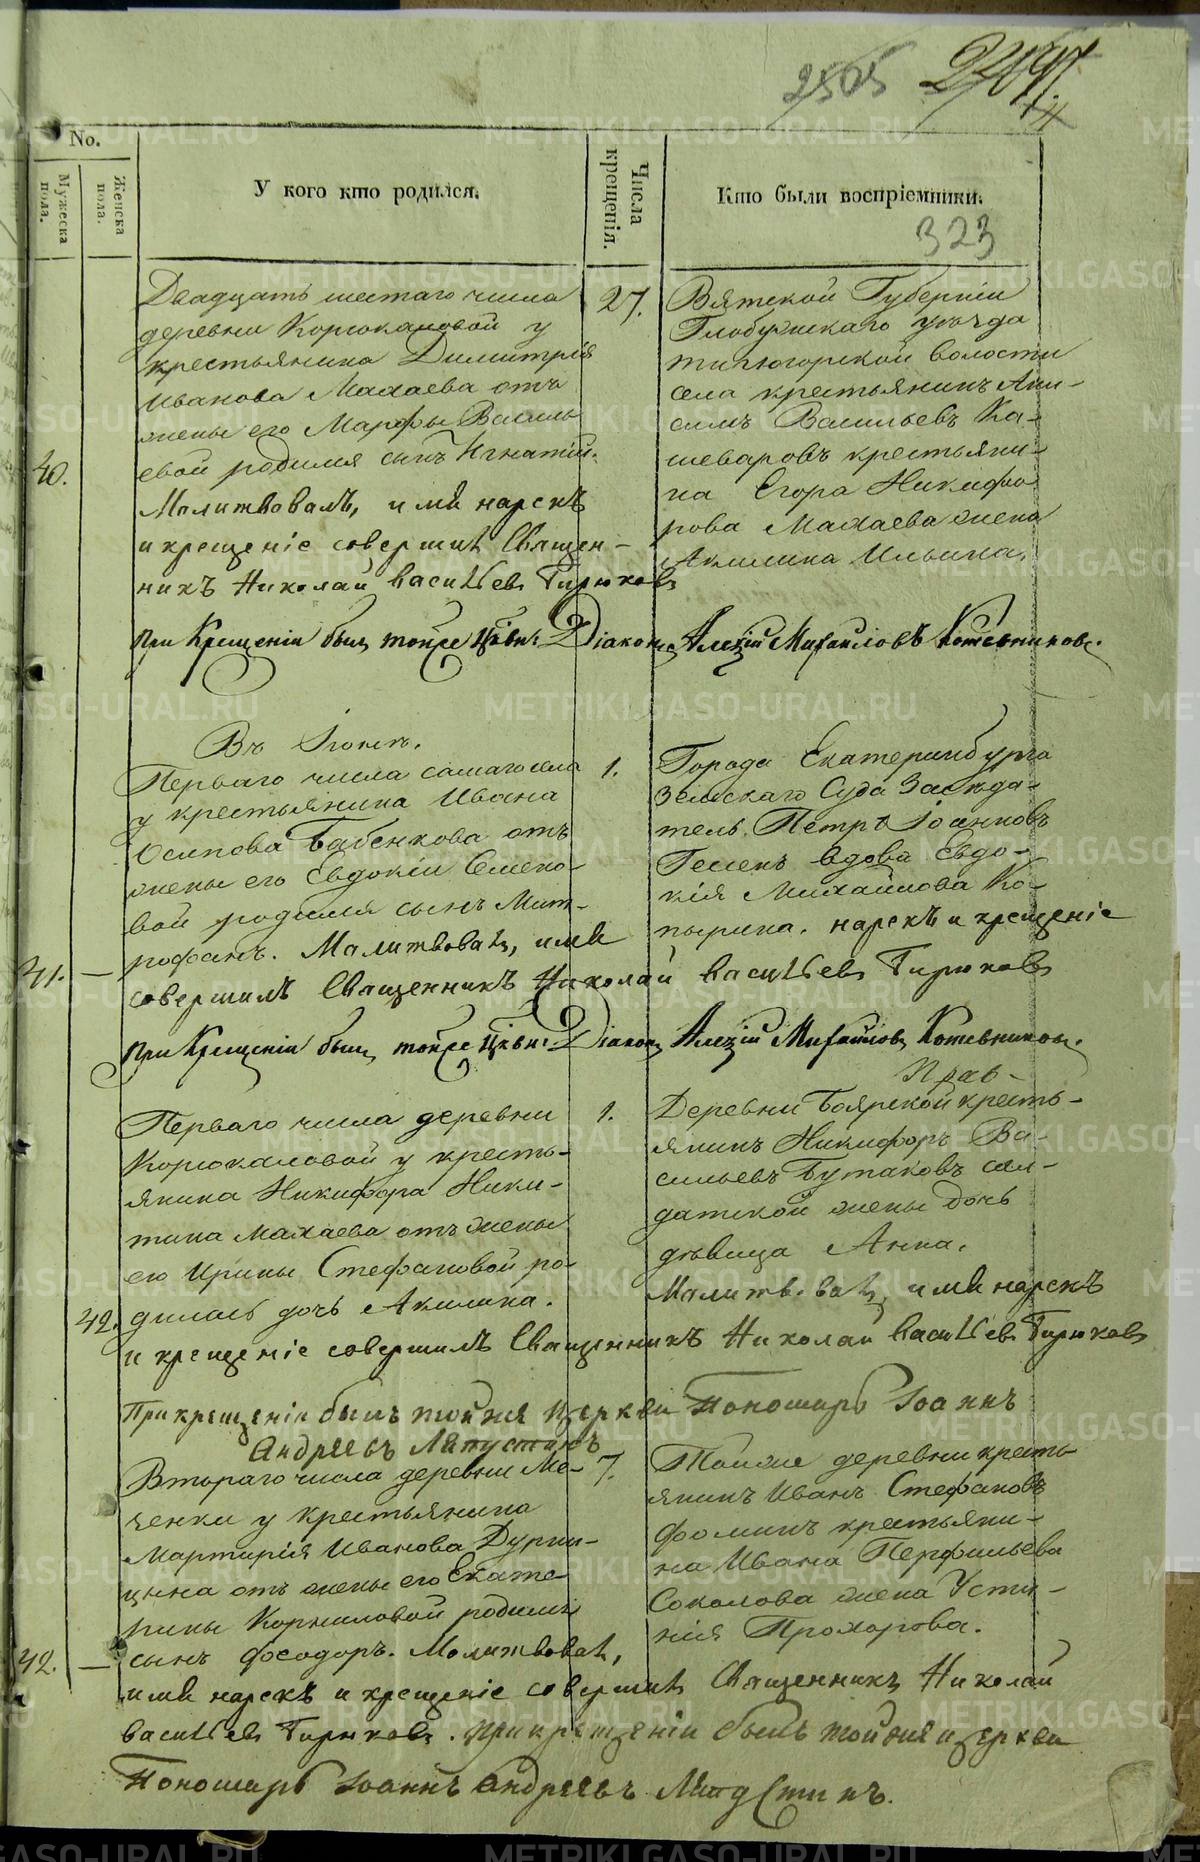 2565 2204
4
No.
Мужеска пола.
Женска пола.
У кого кто родился.
Числа крещенія.
Кто были воспріемники.
323
Двадцать шестаго числа
деревни Корюкаловой у
крестьянина Димитрія
Иванова Махаева отъ
жены его Марфы Василь
евой родился сынъ Игнатій.
Молитвовалъ, имя нарекъ
и крещеніе совершилъ Священ-
никъ Николай Васильевъ Гирюковъ
40.
27.
Вятской Губерніи
Глобужскаго уѣзда
волости
села крестьянинъ Ани-
симъ Васильевъ Ка-
шеваровъ крестьяни-
на Егора Никифо
рова Махаева жена
Акилина Ильина.
При Крещеніи былъ тойже Цркви: Діаконъ Алексій Михаиловъ Котевниковъ.
Въ Іюнѣ.
Перваго числа самаго села
у крестьянина Ивана
Осипова Бабенкова отъ
жены его Евдокіи Семено-
вой родился сынъ Мит-
рофанъ. Молитвовалъ, имя
41. —
1.
Города Екатеринбурга
Земскаго Суда Засѣда-
тель Петръ Іоанновъ
Геленъ вдова Евдо-
кія Михайлова Ко-
пырина. нарекъ и крещеніе
совершилъ Священникъ Николай Васильевъ Гирюковъ
При Крещеніи былъ тойже Цркви: Діаконъ Алексій Михаиловъ Котевниковъ.
Перваго числа деревни
Корюкаловой у кресть-
янина Никифора Ники-
тина Махаева отъ жены
его Ирины Стефановой ро-
дилась дочь Акилина.
42.
1.
Деревни Боярской кресть-
янинъ Никифоръ Ва-
сильевъ Бутаковъ сол-
датской жены дочь
дѣвица Анна.
Молитвовалъ, имя нарекъ
и крещеніе совершилъ Священникъ Николай Васильевъ Гирюковъ
При крещеніи былъ тойжя церкви Пономарь Іоаннъ
Андреевъ Лапустинъ
Втораго числа деревни Мо-
ченки у крестьянина
Мартирія Иванова Дурни-
цына отъ жены его Екате-
рины Корниловой родился
сынъ Феодоръ. Молитвовалъ,
42. —
7.
Тойже деревни кресть-
янинъ Иванъ Стефановъ
Фоминъ крестьяни-
на Ивана Перфильева
Соколова жена Усти-
нія Прохорова.
имя нарекъ и крещеніе совершилъ Священникъ Николай
Васильевъ Гирюковъ. При крещеніи былъ тойжя церкви
Пономарь Іоаннъ Андреевъ Лапустинъ.
METRIKI.GASO-URAL.RU